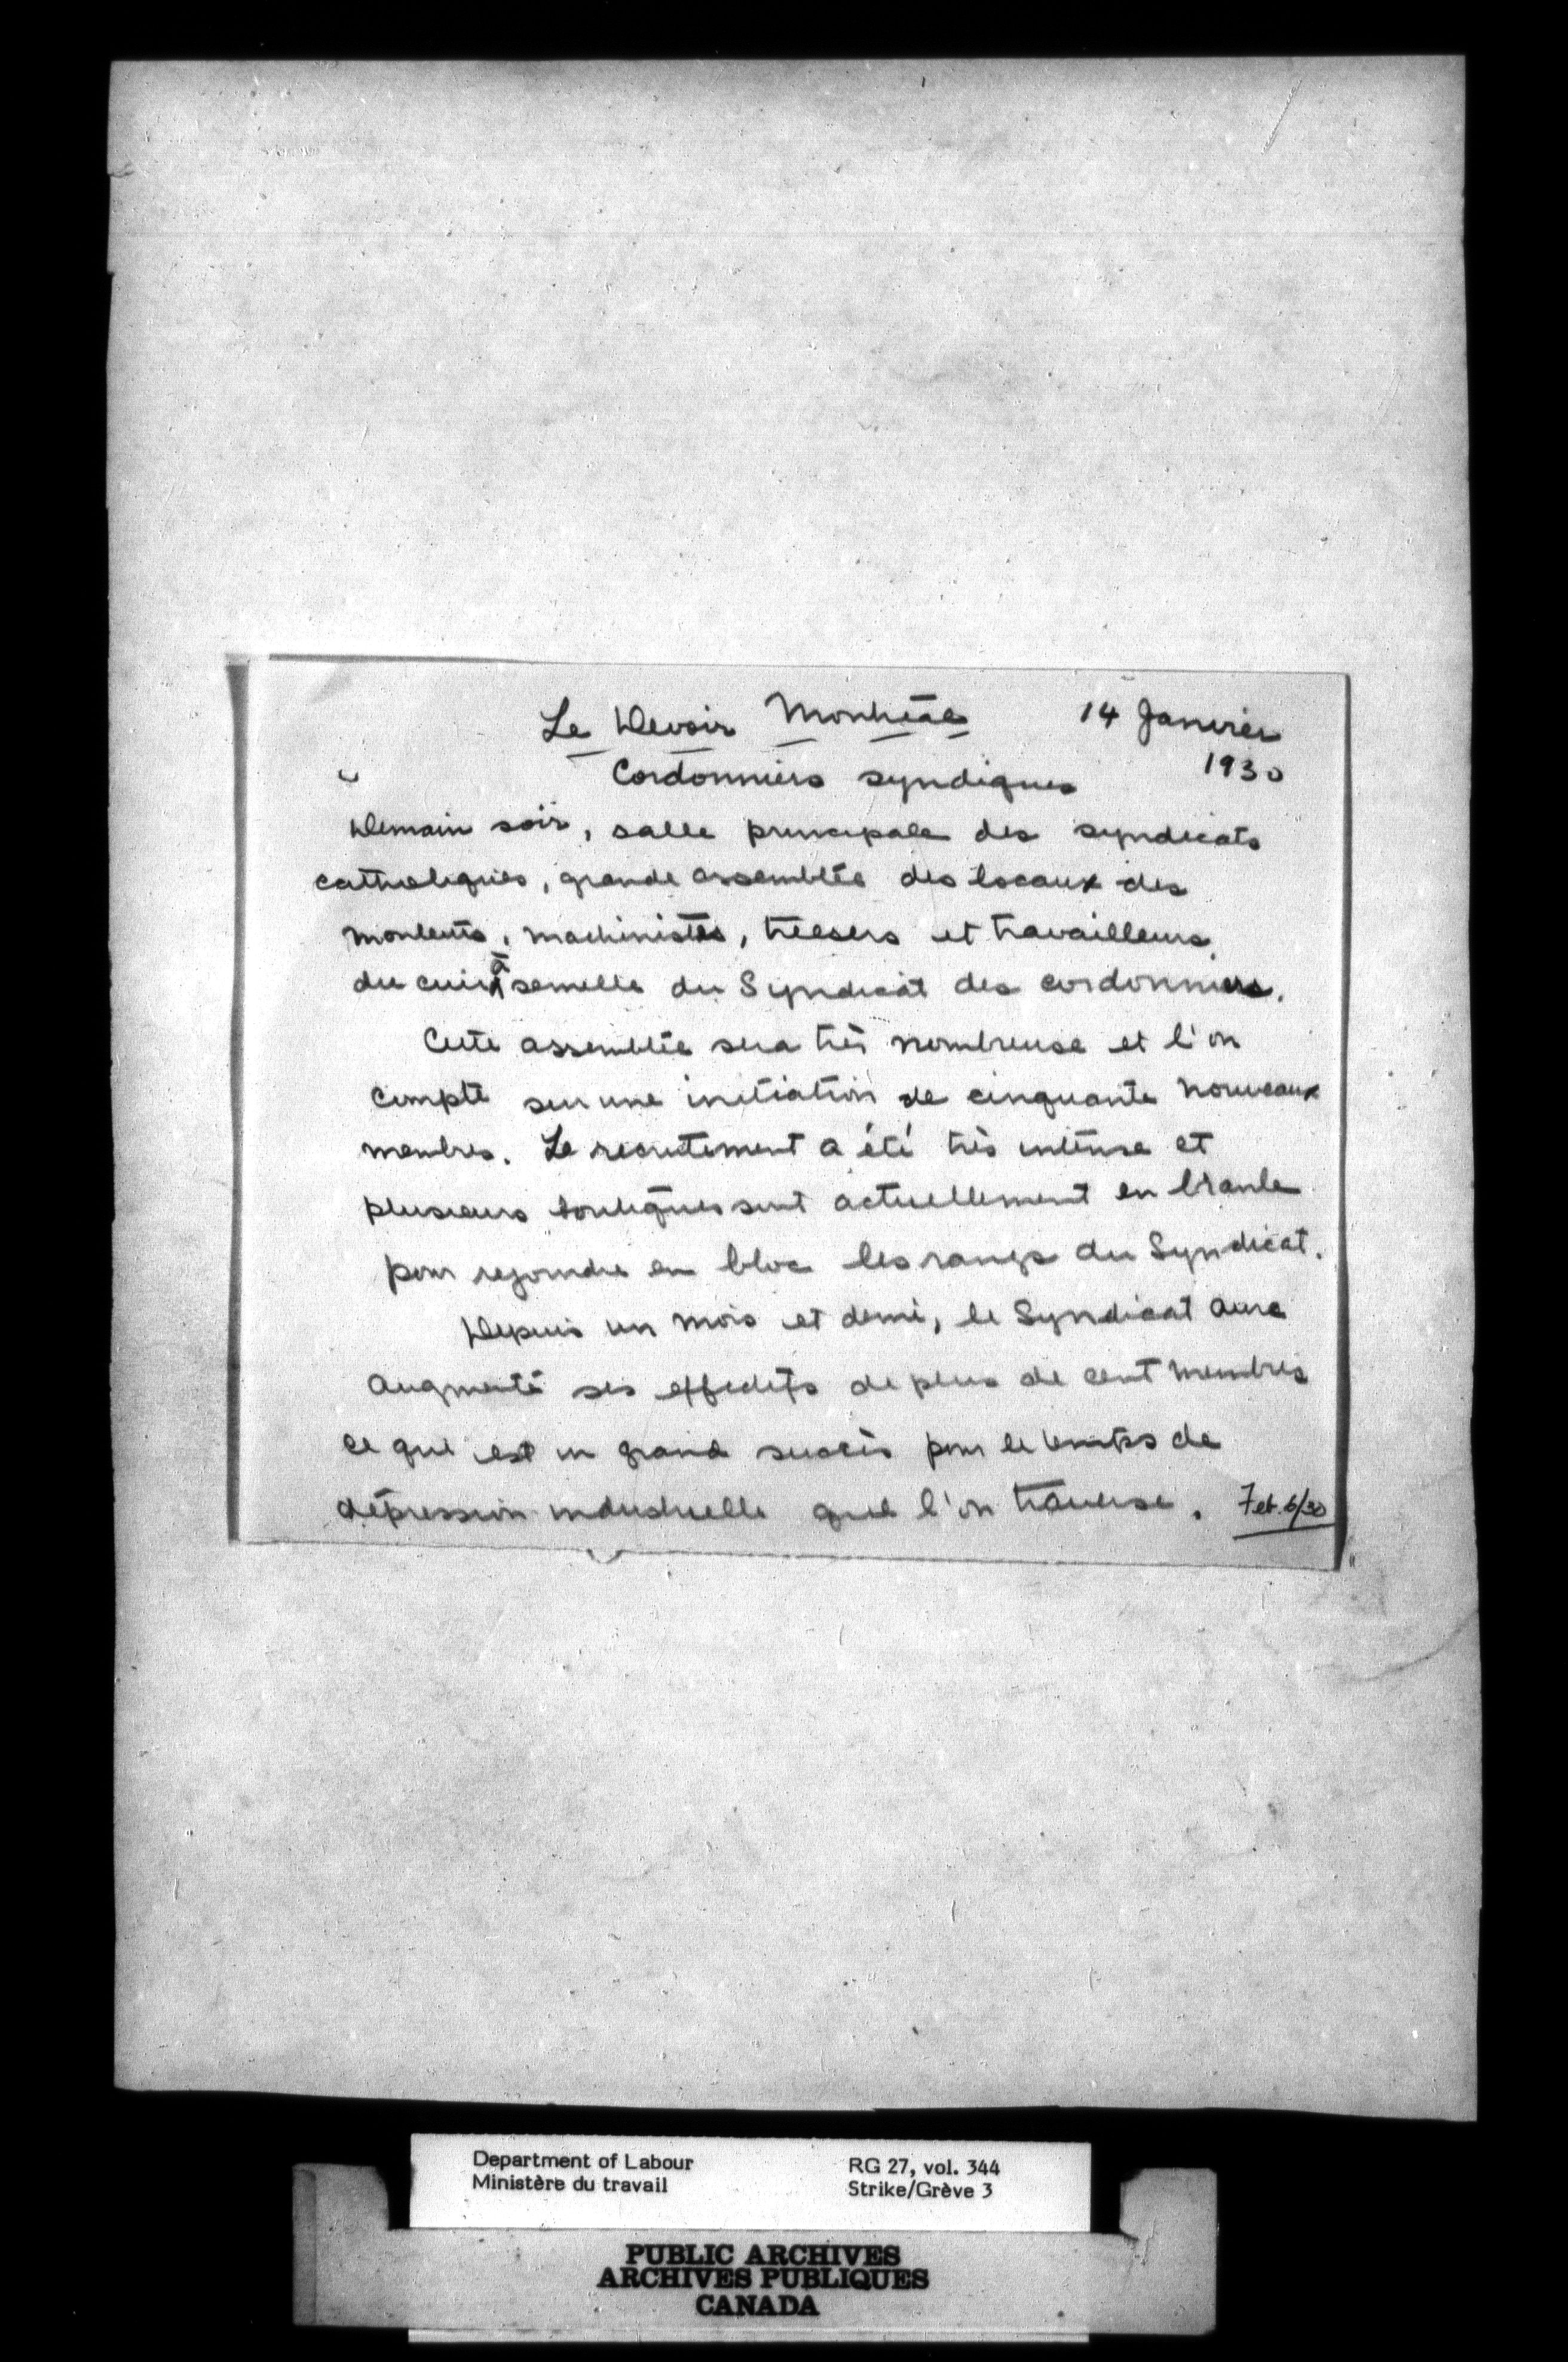 Le Devoir Montréal 14 Janvier
1930
Cordonniers syndiqués
Demain soir, salle principale des syndicats
catholiques, grande assemblée des locaux des
monteurs, machinistes, et travailleurs
du cuir à semelle du Syndicat des cordonniers.
Cette assemblée sera très nombreuse et l'on
compte sur une initiation de cinquante nouveaux
membres. Le recrutement a été très intense et
plusieurs boutiques sont actuellement en branle
pour rejoindre en bloc les rangs du Syndicat.
Depuis un mois et demi, le Syndicat aura
augmenté ses effectifs de plus de cent membres
ce qui est un grand succès pour le temps de
dépression industrielle que l'on traverse. Feb. 6/30
Department of Labour
Ministère du travail
RG 27, vol. 344
Strike/Grève 3
PUBLIC ARCHIVES
ARCHIVES PUBLIQUES
CANADA